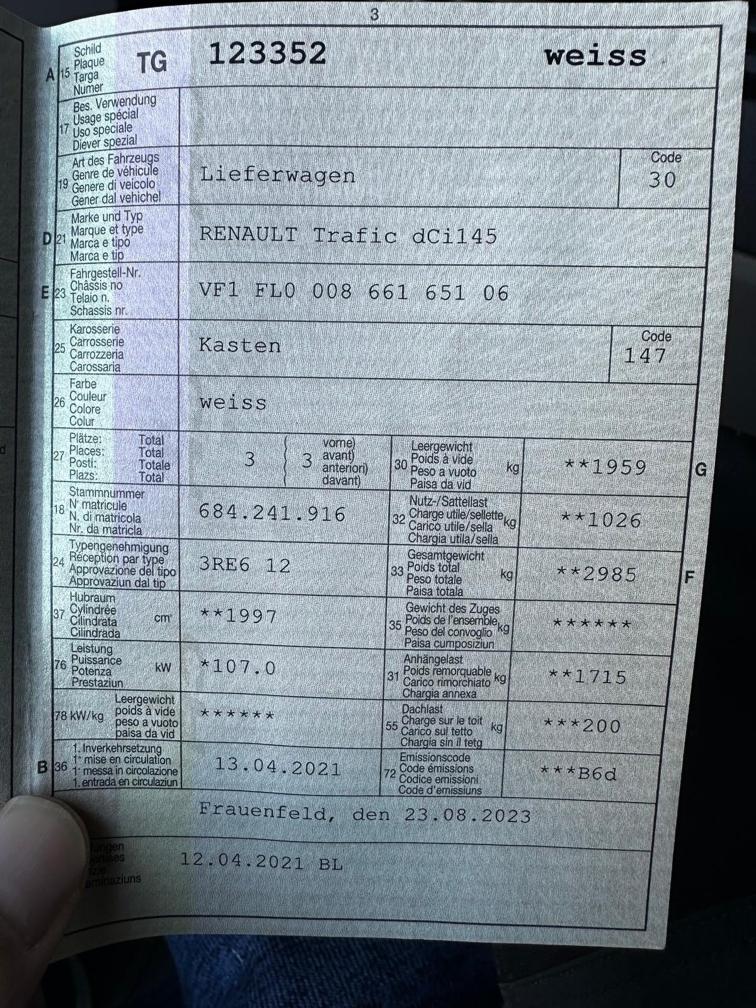 3
A 15 Schild
Plaque
Targa
Numer
TG 123352 weiss
17 Bes. Verwendung
Usage spécial
Uso speciale
Diever spezial
19 Art des Fahrzeugs
Genre de véhicule
Genere di veicolo
Gener dal vehichel
Lieferwagen
Code
30
D 21 Marke und Typ
Marque et type
Marca e tipo
Marca e tip
RENAULT Trafic dCi145
E 23 Fahrgestell-Nr.
Châssis no
Telaio n.
Schassis nr.
VF1 FL0 008 661 651 06
25 Karosserie
Carrosserie
Carrozzeria
Carossaria
Kasten
Code
147
26 Farbe
Couleur
Colore
Colur
weiss
27 Plätze: Total
Places: Total
Posti: Totale
Plazs: Total
3 ( 3 vorne)
avant)
anteriori)
davant)
30 Leergewicht
Poids à vide
Peso a vuoto
Paisa da vid
kg **1959 G
18 Stammnummer
N° matricule
N. di matricola
Nr. da matricla
684.241.916
32 Nutz-/Sattellast
Charge utile/sellette
Carico utile/sella
Chargia utila/sella
kg **1026
24 Typengenehmigung
Réception par type
Approvazione del tipo
Approvaziun dal tip
3RE6 12
33 Gesamtgewicht
Poids total
Peso totale
Paisa totala
kg **2985 F
37 Hubraum
Cylindrée
Cilindrata
Cilindrada
cm³ **1997
35 Gewicht des Zuges
Poids de l'ensemble
Peso del convoglio
Paisa cumposiziun
kg ******
76 Leistung
Puissance
Potenza
Prestaziun
kW *107.0
31 Anhängelast
Poids remorquable
Carico rimorchiato
Chargia annexa
kg **1715
78 kW/kg Leergewicht
poids à vide
peso a vuoto
paisa da vid
******
55 Dachlast
Charge sur le toit
Carico sul tetto
Chargia sin il tetg
kg ***200
B 36 1. Inverkehrsetzung
1re mise en circulation
1a messa in circolazione
1. entrada en circulaziun
13.04.2021
72 Emissionscode
Code émissions
Codice emissioni
Code d'emissiuns
***B6d
Frauenfeld, den 23.08.2023
12.04.2021 BL